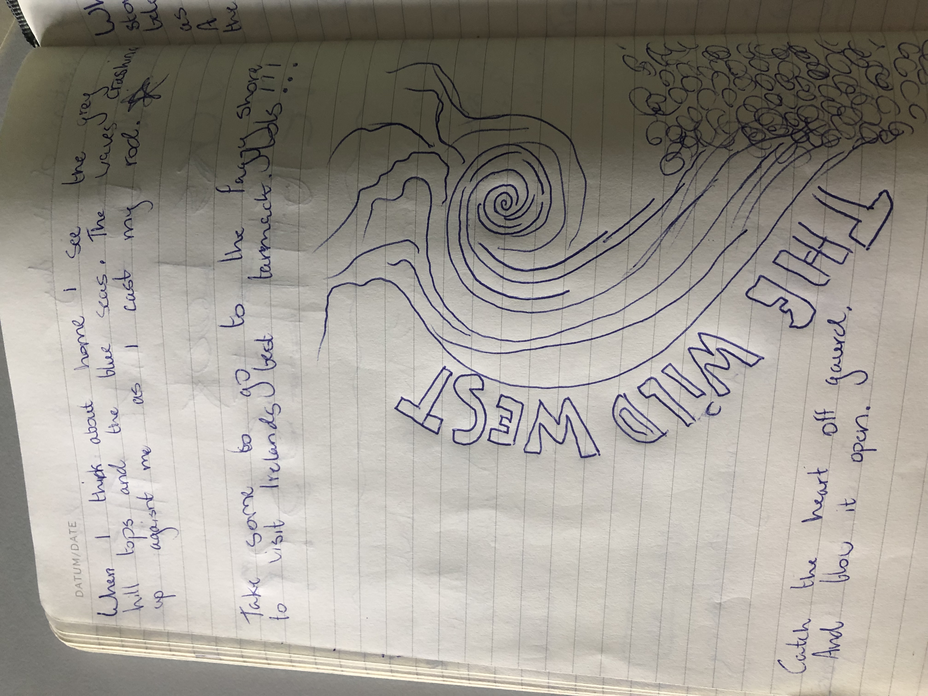 DATUM/DATE
When I think about home I see the grey
hill tops and the blue seas. The waves crashing
up against me as I cast my rod.
Take some to go to the foggy shore
to visit Irelands best tarmack. Hols !!!...
THE WILD WEST
Catch the heart off gaurd.
And blow it open.
Wh
sto
as
A
the